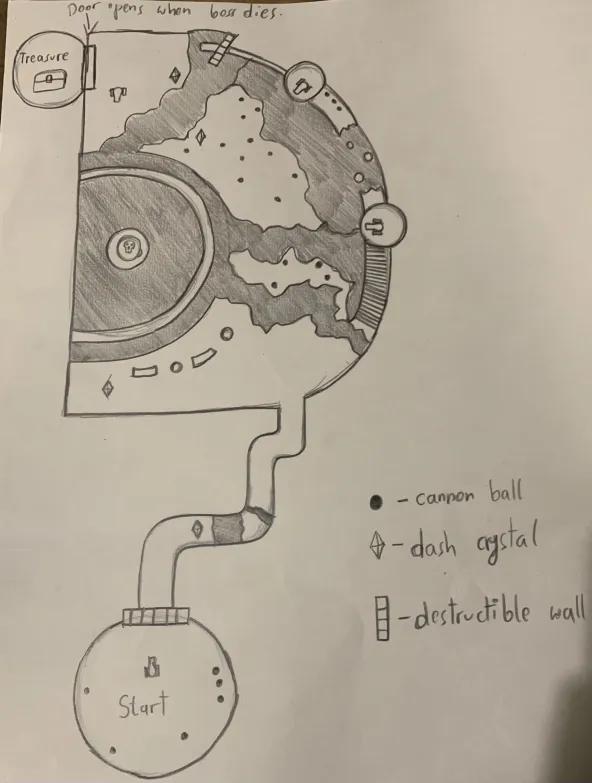 Door opens when boss dies.
Treasure
Start
- cannon ball
- dash crystal
- destructible wall